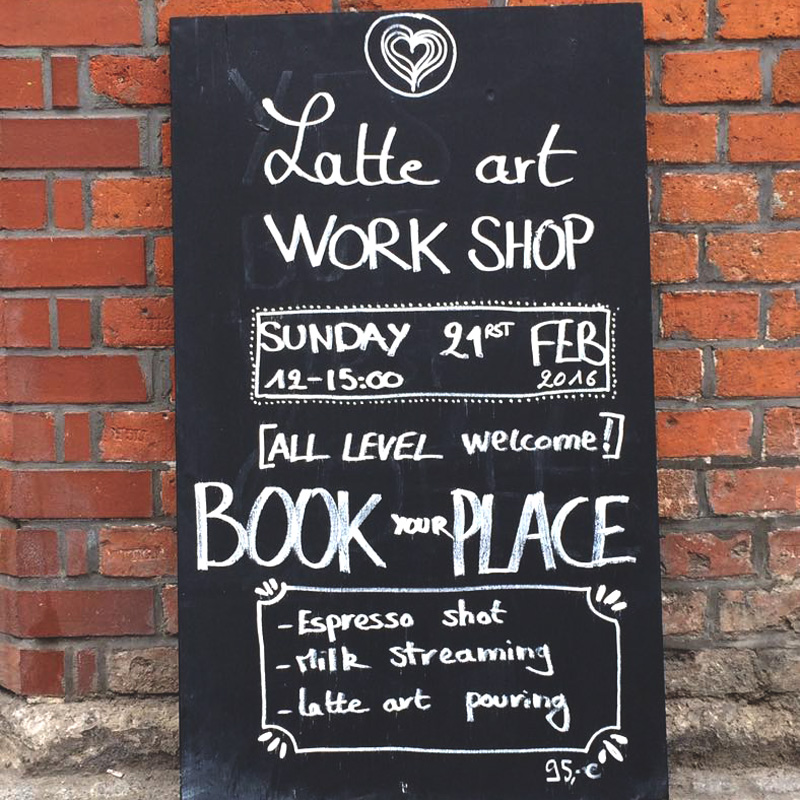 Latte art
WORK SHOP
SUNDAY 21RST FEB
12-15:00 2016
[ALL LEVEL welcome!]
BOOK YOUR PLACE
- Espresso shot
- Milk streaming
- latte art pouring
95,-€